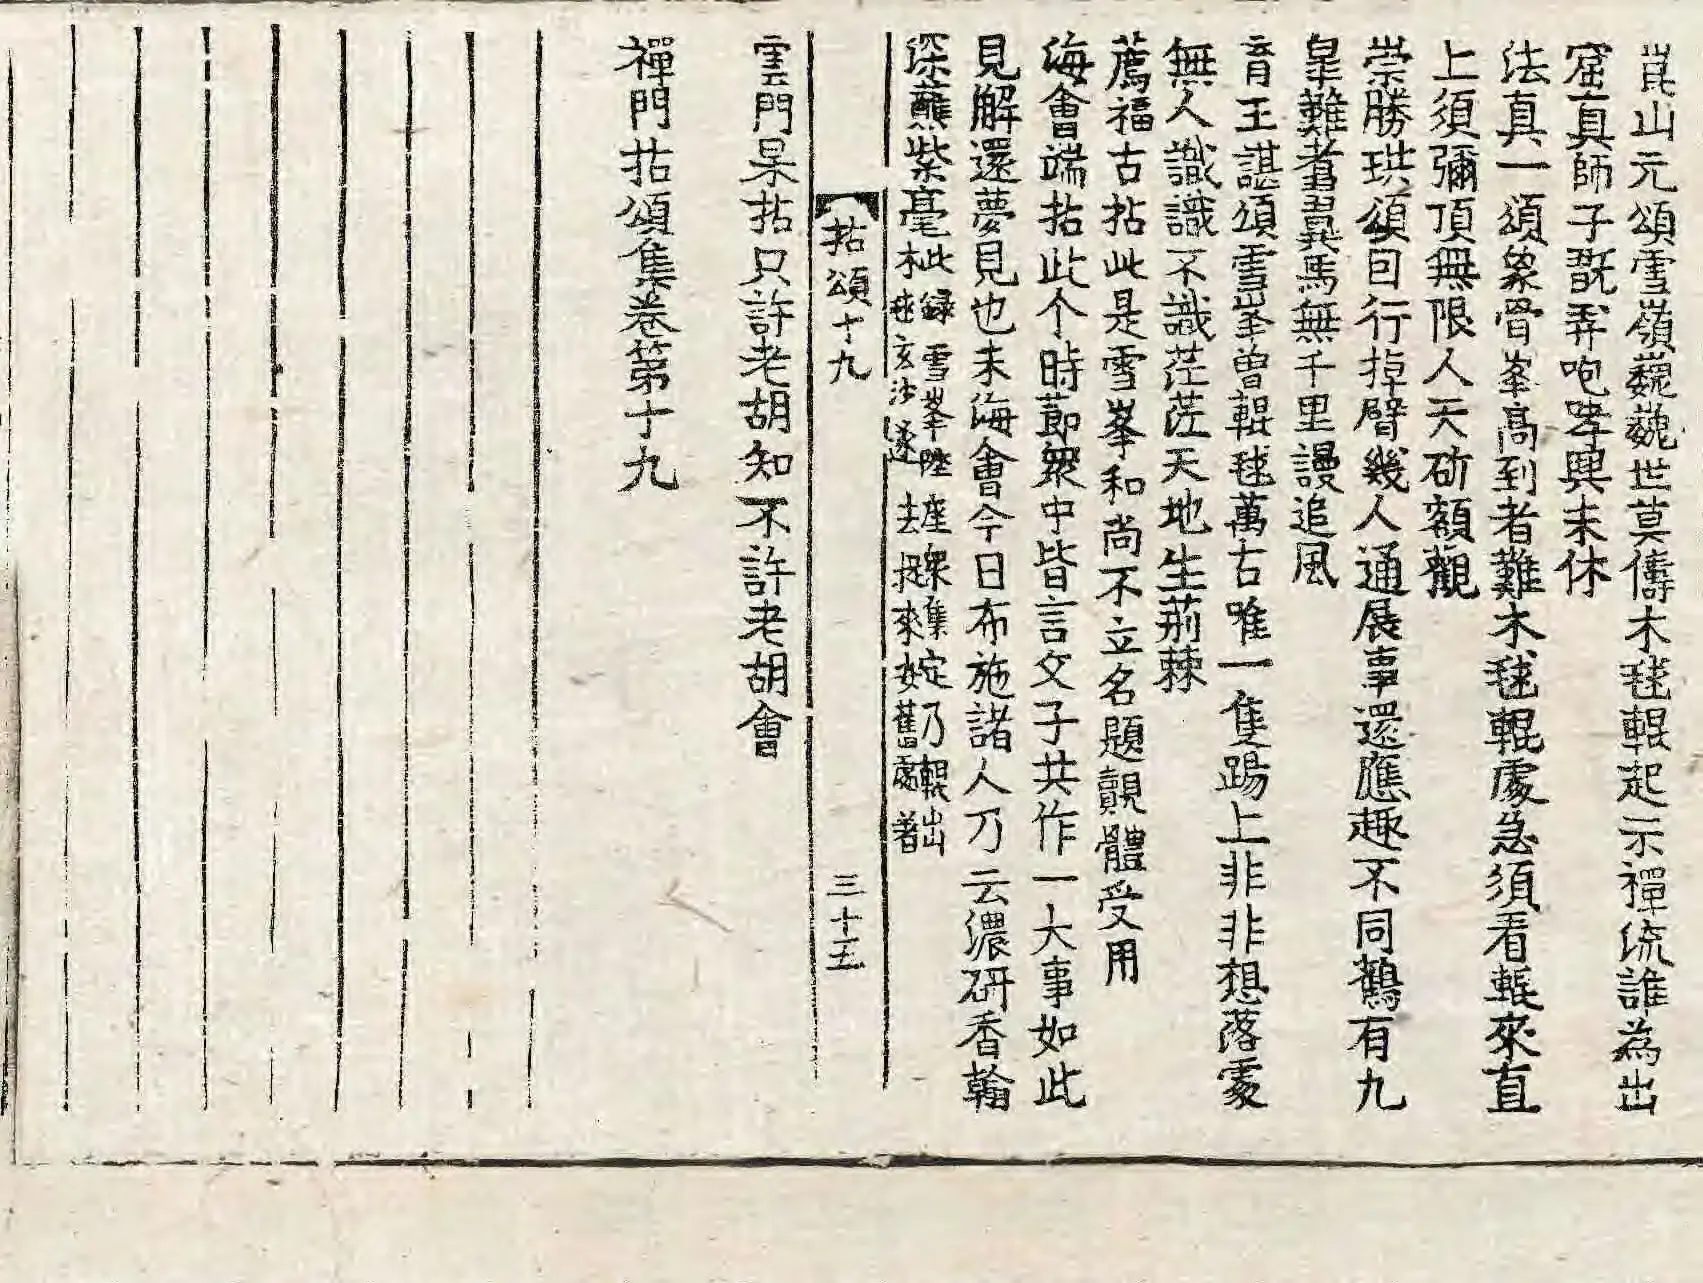 崑山元頌雪嶺巍巍世莫儔木毬輥起示禪流誰為出
窟真師子翫弄咆哮興未休
法真一頌象骨峯高到者難木毬輥處急須看輥來直
上須彌頂無限人天斫額觀
崇勝珙頌曰行掉臂幾人通展事還應趣不同鶴有九
臯難翥翼馬無千里謾追風
育王諶頌雪峯曾輥毬萬古唯一隻踢上非非想落處
無人識識不識茫茫天地生荊棘
薦福古拈此是雪峯和尚不立名題覿體受用
海會端拈此个時莭衆中皆言文子共作一大事如此
見解還夢見也未海會今日布施諸人乃云濃硏香翰
深蘸紫毫此録雪峯陞座衆集定乃輥出
木毬玄沙遂去捉來安舊處著
拈頌十九
三十五
雲門杲拈只許老胡知不許老胡會
禪門拈頌集卷第十九